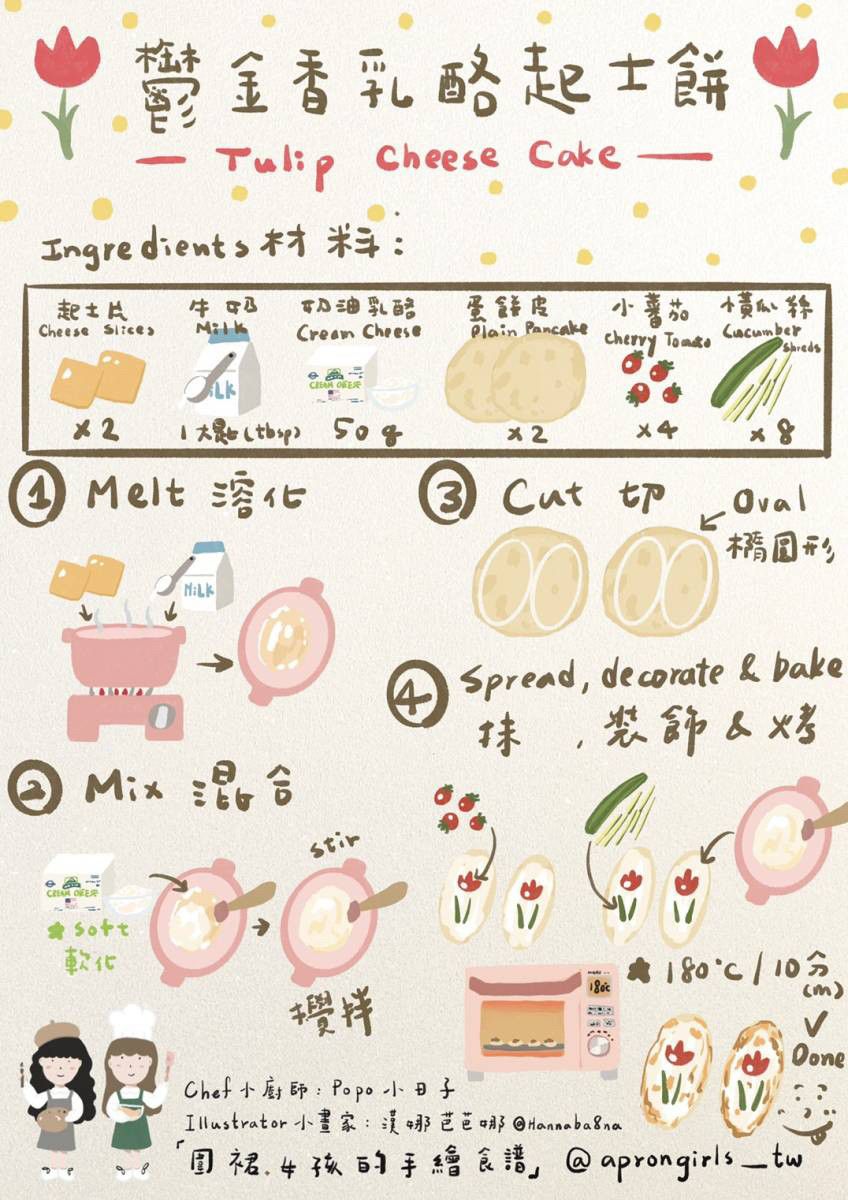 鬱金香乳酪起士餅
Tulip Cheese Cake
Ingredients 材料:
起士片 牛奶 奶油乳酪 蛋餅皮 小蕃茄 橫瓜絲
Cheese Slices Milk Cream Cheese Plain Pancake Cherry Tomato Cucumber shreds
MILK CREAM CHEESE
x2 1大匙(tbsp) 50g x2 x4 x8
① Melt 溶化
MiLK
② Mix 混合
stir
CREAM CHEESE
★ soft
軟化
攪拌
③ Cut 切
Oval
橢圓形
④ Spread, decorate & bake
抹 , 裝飾 & 烤
180℃
★ 180℃/10分
(m)
✓
Done
Chef 小廚師: Popo 小日子
Illustrator 小畫家: 漢娜芭芭娜 @Hannaba8na
「圍裙女孩的手繪食譜」 @aprongirls_tw